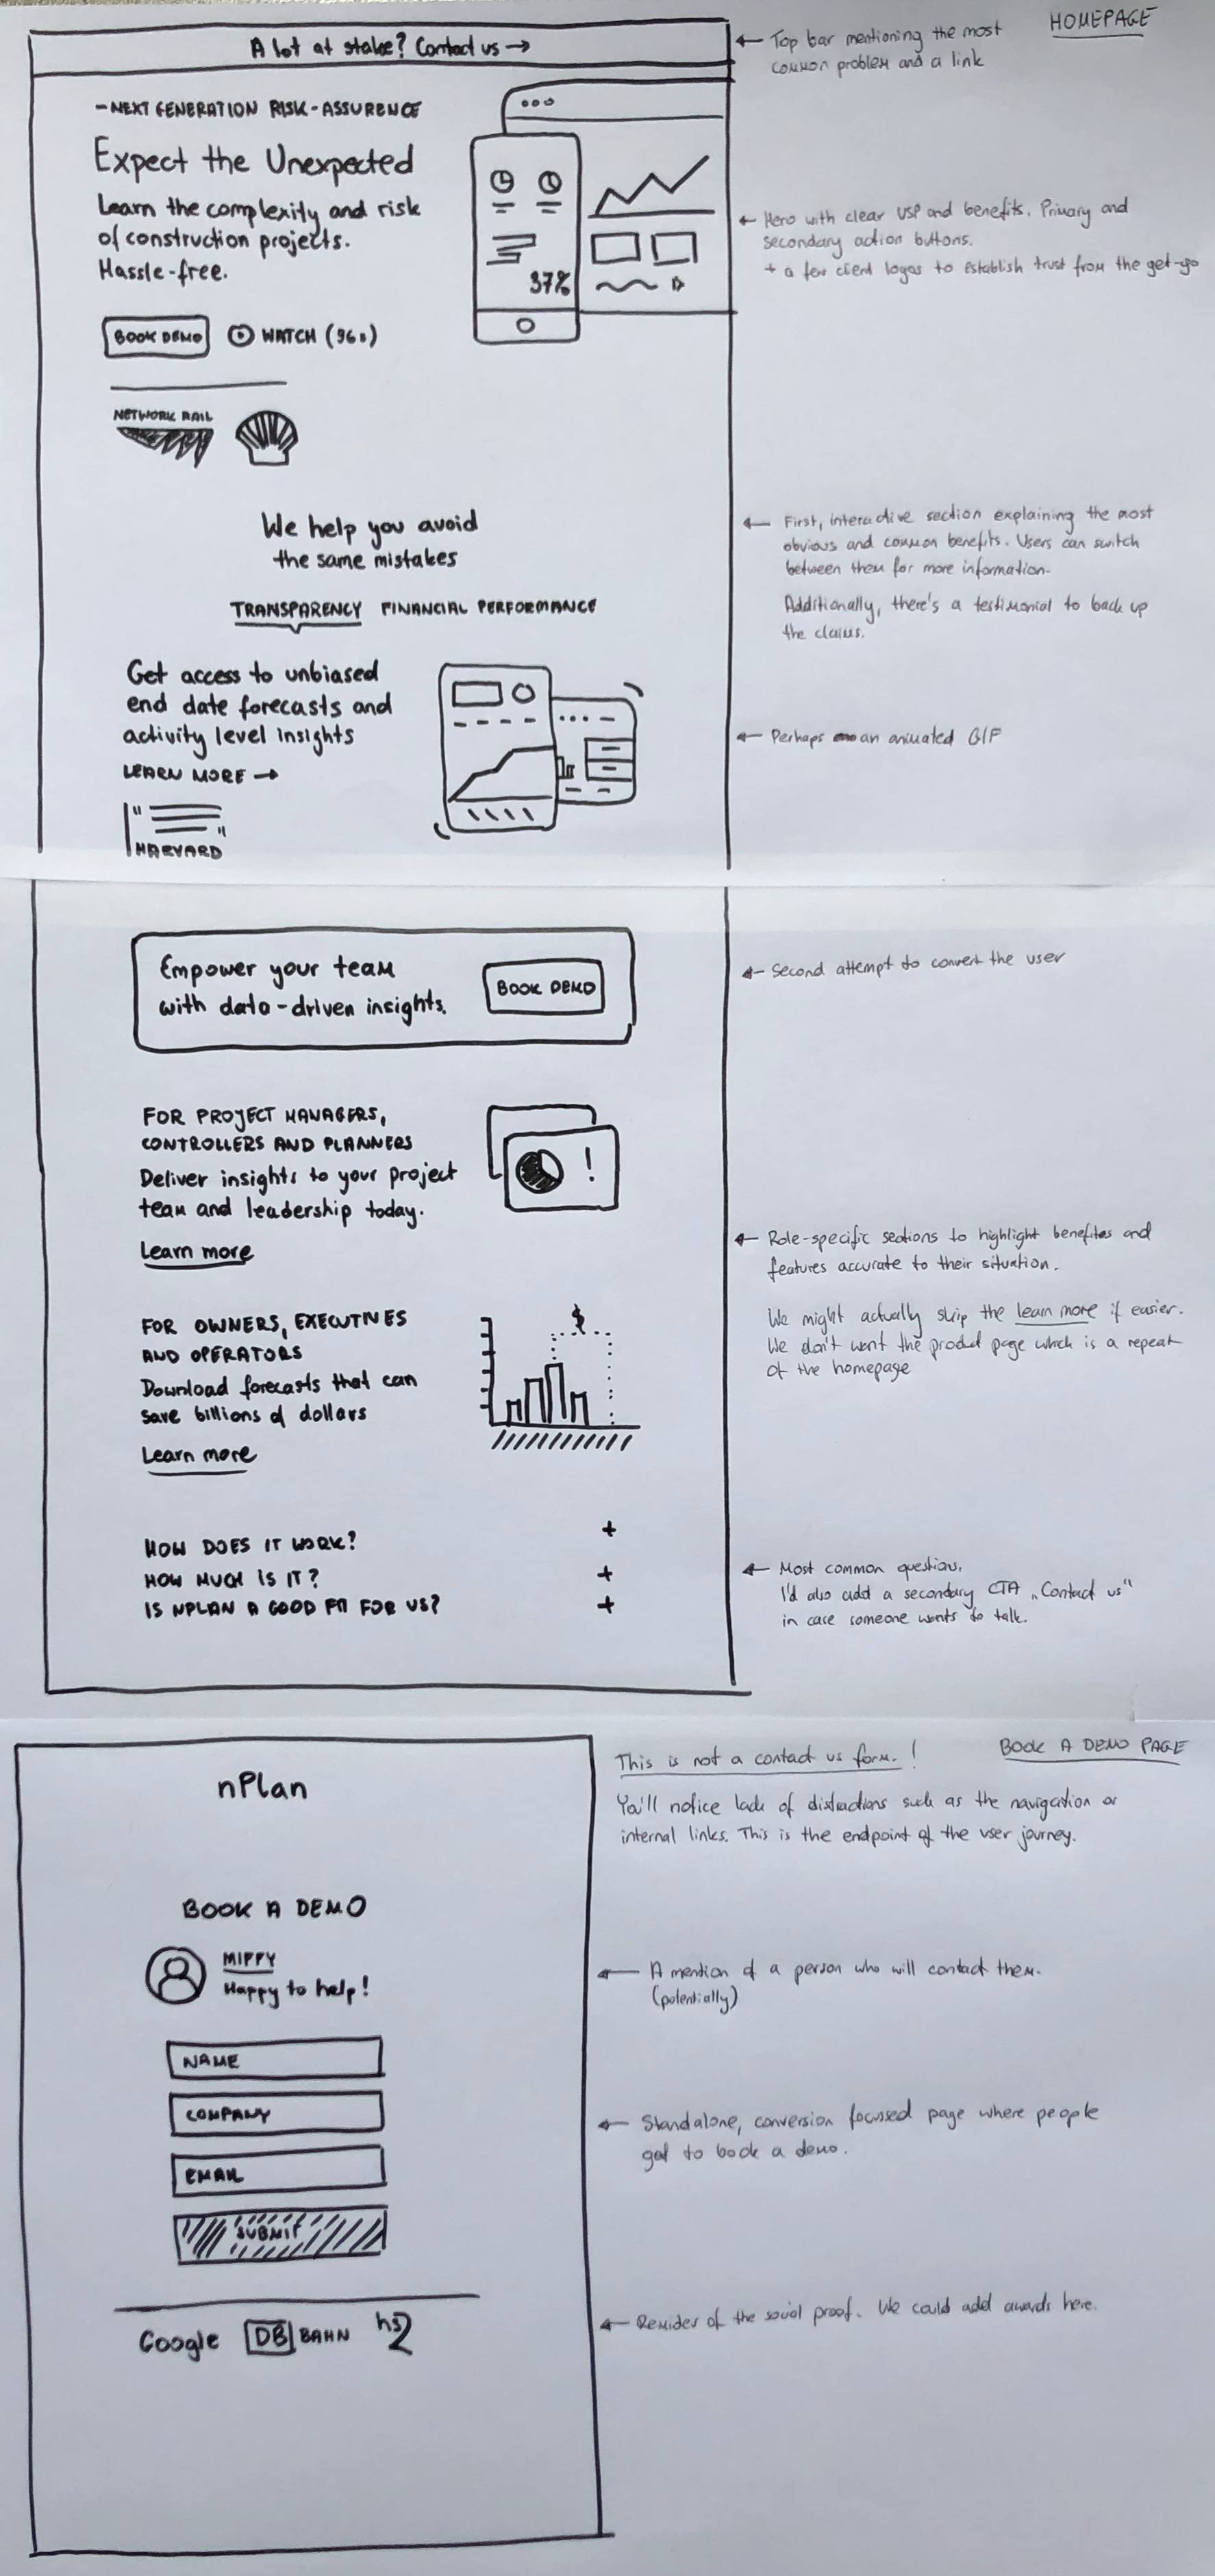 HOMEPAGE
A lot at stake? Contact us →
← Top bar mentioning the most
common problem and a link
- NEXT GENERATION RISK-ASSURENCE
Expect the Unexpected
Learn the complexity and risk
of construction projects.
Hassle-free.
37%
BOOK DEMO WATCH (96s)
← Hero with clear USP and benefits. Primary and
secondary action buttons.
+ a few client logos to establish trust from the get-go
NETWORK RAIL
We help you avoid
the same mistakes
TRANSPARENCY FINANCIAL PERFORMANCE
← First, interactive section explaining the most
obvious and common benefits. Users can switch
between them for more information.
Additionally, there's a testimonial to back up
the claims.
Get access to unbiased
end date forecasts and
activity level insights
LEARN MORE →
" "
HARVARD
← Perhaps an animated GIF
Empower your team
with data-driven insights.
BOOK DEMO
← Second attempt to convert the user
FOR PROJECT MANAGERS,
CONTROLLERS AND PLANNERS
Deliver insights to your project
team and leadership today.
Learn more
!
← Role-specific sections to highlight benefites and
features accurate to their situation.
We might actually skip the learn more if easier.
We don't want the product page which is a repeat
of the homepage
FOR OWNERS, EXECUTIVES
AND OPERATORS
Download forecasts that can
save billions of dollars
Learn more
$
HOW DOES IT WORK? +
HOW MUCH IS IT? +
IS NPLAN A GOOD FIT FOR US? +
← Most common questions.
I'd also add a secondary CTA „Contact us"
in case someone wants to talk.
BOOK A DEMO PAGE
This is not a contact us form. !
You'll notice lack of distractions such as the navigation or
internal links. This is the endpoint of the user journey.
nPlan
BOOK A DEMO
MIFFY
Happy to help!
← A mention of a person who will contact them.
(potentially)
NAME
COMPANY
EMAIL
SUBMIT
← Standalone, conversion focussed page where people
get to book a demo.
Google DB BAHN hs2
← Remider of the social proof. We could add awards here.